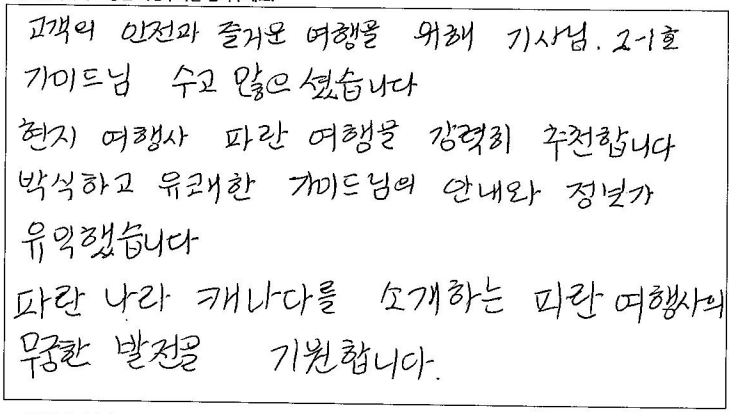 고객의 안전과 즐거운 여행을 위해 기사님. 2-1호
가이드님 수고 많으셨습니다
현지 여행사 파란 여행을 강력히 추천합니다
박식하고 유쾌한 가이드님의 안내와 정보가
유익했습니다
파란 나라 캐나다를 소개하는 파란 여행사의
무궁한 발전을 기원합니다.